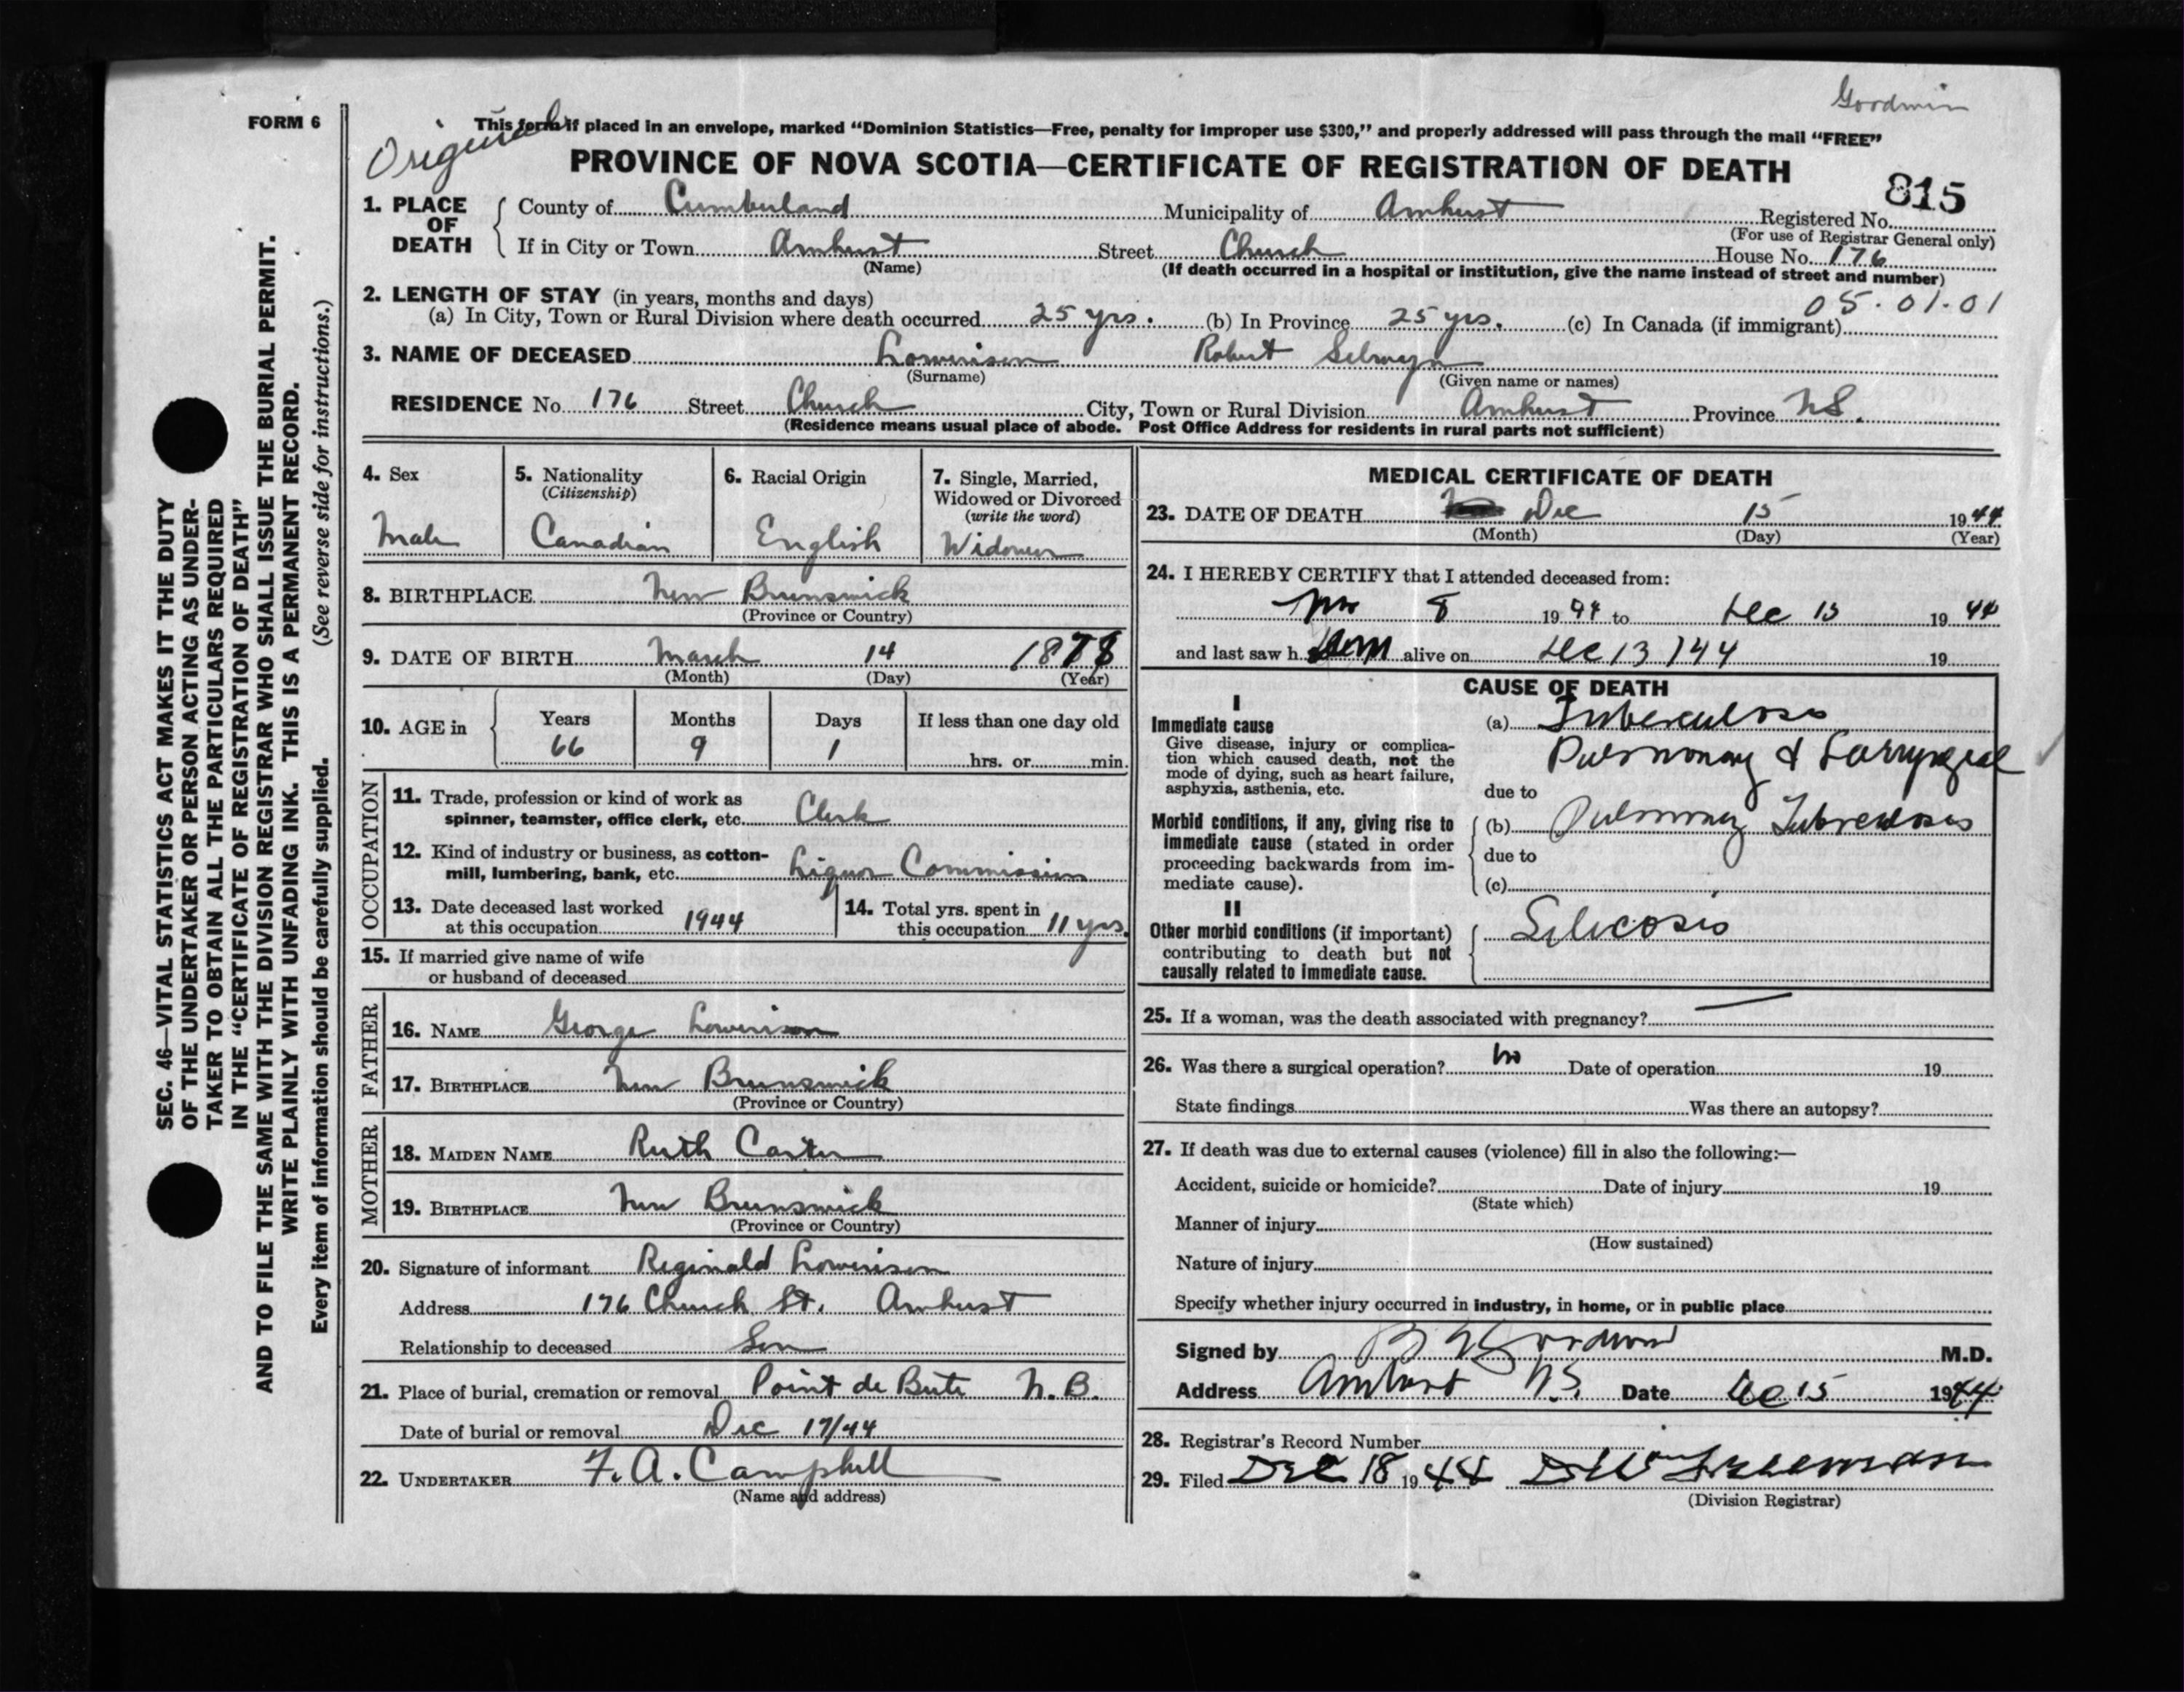 Goodwin
FORM 6
Original
This form if placed in an envelope, marked "Dominion Statistics—Free, penalty for improper use $300," and properly addressed will pass through the mail "FREE"
PROVINCE OF NOVA SCOTIA—CERTIFICATE OF REGISTRATION OF DEATH
815
1. PLACE OF DEATH County of Cumberland Municipality of Amherst Registered No.
(For use of Registrar General only)
If in City or Town Amherst Street Church House No. 176
(Name) (If death occurred in a hospital or institution, give the name instead of street and number)
2. LENGTH OF STAY (in years, months and days) 05.01.01
(a) In City, Town or Rural Division where death occurred 25 yrs. (b) In Province 25 yrs. (c) In Canada (if immigrant)
3. NAME OF DECEASED Lowerison Robert Selwyn
(Surname) (Given name or names)
RESIDENCE No. 176 Street Church City, Town or Rural Division Amherst Province N.S.
(Residence means usual place of abode. Post Office Address for residents in rural parts not sufficient)
4. Sex
Male
5. Nationality
(Citizenship)
Canadian
6. Racial Origin
English
7. Single, Married,
Widowed or Divorced
(write the word)
Widower
8. BIRTHPLACE New Brunswick
(Province or Country)
9. DATE OF BIRTH March 14 1878
(Month) (Day) (Year)
10. AGE in Years Months Days If less than one day old
66 9 1 hrs. or min.
OCCUPATION
11. Trade, profession or kind of work as
spinner, teamster, office clerk, etc. Clerk
12. Kind of industry or business, as cotton-
mill, lumbering, bank, etc. Liquor Commission
13. Date deceased last worked
at this occupation 1944
14. Total yrs. spent in
this occupation 11 yrs.
15. If married give name of wife
or husband of deceased
FATHER
16. NAME George Lowerison
17. BIRTHPLACE New Brunswick
(Province or Country)
MOTHER
18. MAIDEN NAME Ruth Carter
19. BIRTHPLACE New Brunswick
(Province or Country)
20. Signature of informant Reginald Lowerison
Address 176 Church St. Amherst
Relationship to deceased Son
21. Place of burial, cremation or removal Point de Bute N.B.
Date of burial or removal Dec 17/44
22. UNDERTAKER F. A. Campbell
(Name and address)
MEDICAL CERTIFICATE OF DEATH
23. DATE OF DEATH Dec 15 1944
(Month) (Day) (Year)
24. I HEREBY CERTIFY that I attended deceased from:
Nov 8 1944 to Dec 13 1944
and last saw h im alive on Dec 13 / 44 19
CAUSE OF DEATH
I
Immediate cause
Give disease, injury or complica-
tion which caused death, not the
mode of dying, such as heart failure,
asphyxia, asthenia, etc.
(a) Tuberculosis
Pulmonary & Larryngeal
due to
Morbid conditions, if any, giving rise to
immediate cause (stated in order
proceeding backwards from im-
mediate cause).
(b) Pulmonary Tuberculosis
due to
(c)
II
Other morbid conditions (if important)
contributing to death but not
causally related to immediate cause.
Silicosis
25. If a woman, was the death associated with pregnancy? —
26. Was there a surgical operation? no Date of operation 19
State findings Was there an autopsy?
27. If death was due to external causes (violence) fill in also the following:—
Accident, suicide or homicide? Date of injury 19
(State which)
Manner of injury
(How sustained)
Nature of injury
Specify whether injury occurred in industry, in home, or in public place
Signed by Goodwin M.D.
Address Amherst N.S. Date Dec 15 1944
28. Registrar's Record Number
29. Filed Dec 18 1944
(Division Registrar)
SEC. 46—VITAL STATISTICS ACT MAKES IT THE DUTY
OF THE UNDERTAKER OR PERSON ACTING AS UNDER-
TAKER TO OBTAIN ALL THE PARTICULARS REQUIRED
IN THE "CERTIFICATE OF REGISTRATION OF DEATH"
AND TO FILE THE SAME WITH THE DIVISION REGISTRAR WHO SHALL ISSUE THE BURIAL PERMIT.
WRITE PLAINLY WITH UNFADING INK. THIS IS A PERMANENT RECORD.
Every item of information should be carefully supplied. (See reverse side for instructions.)